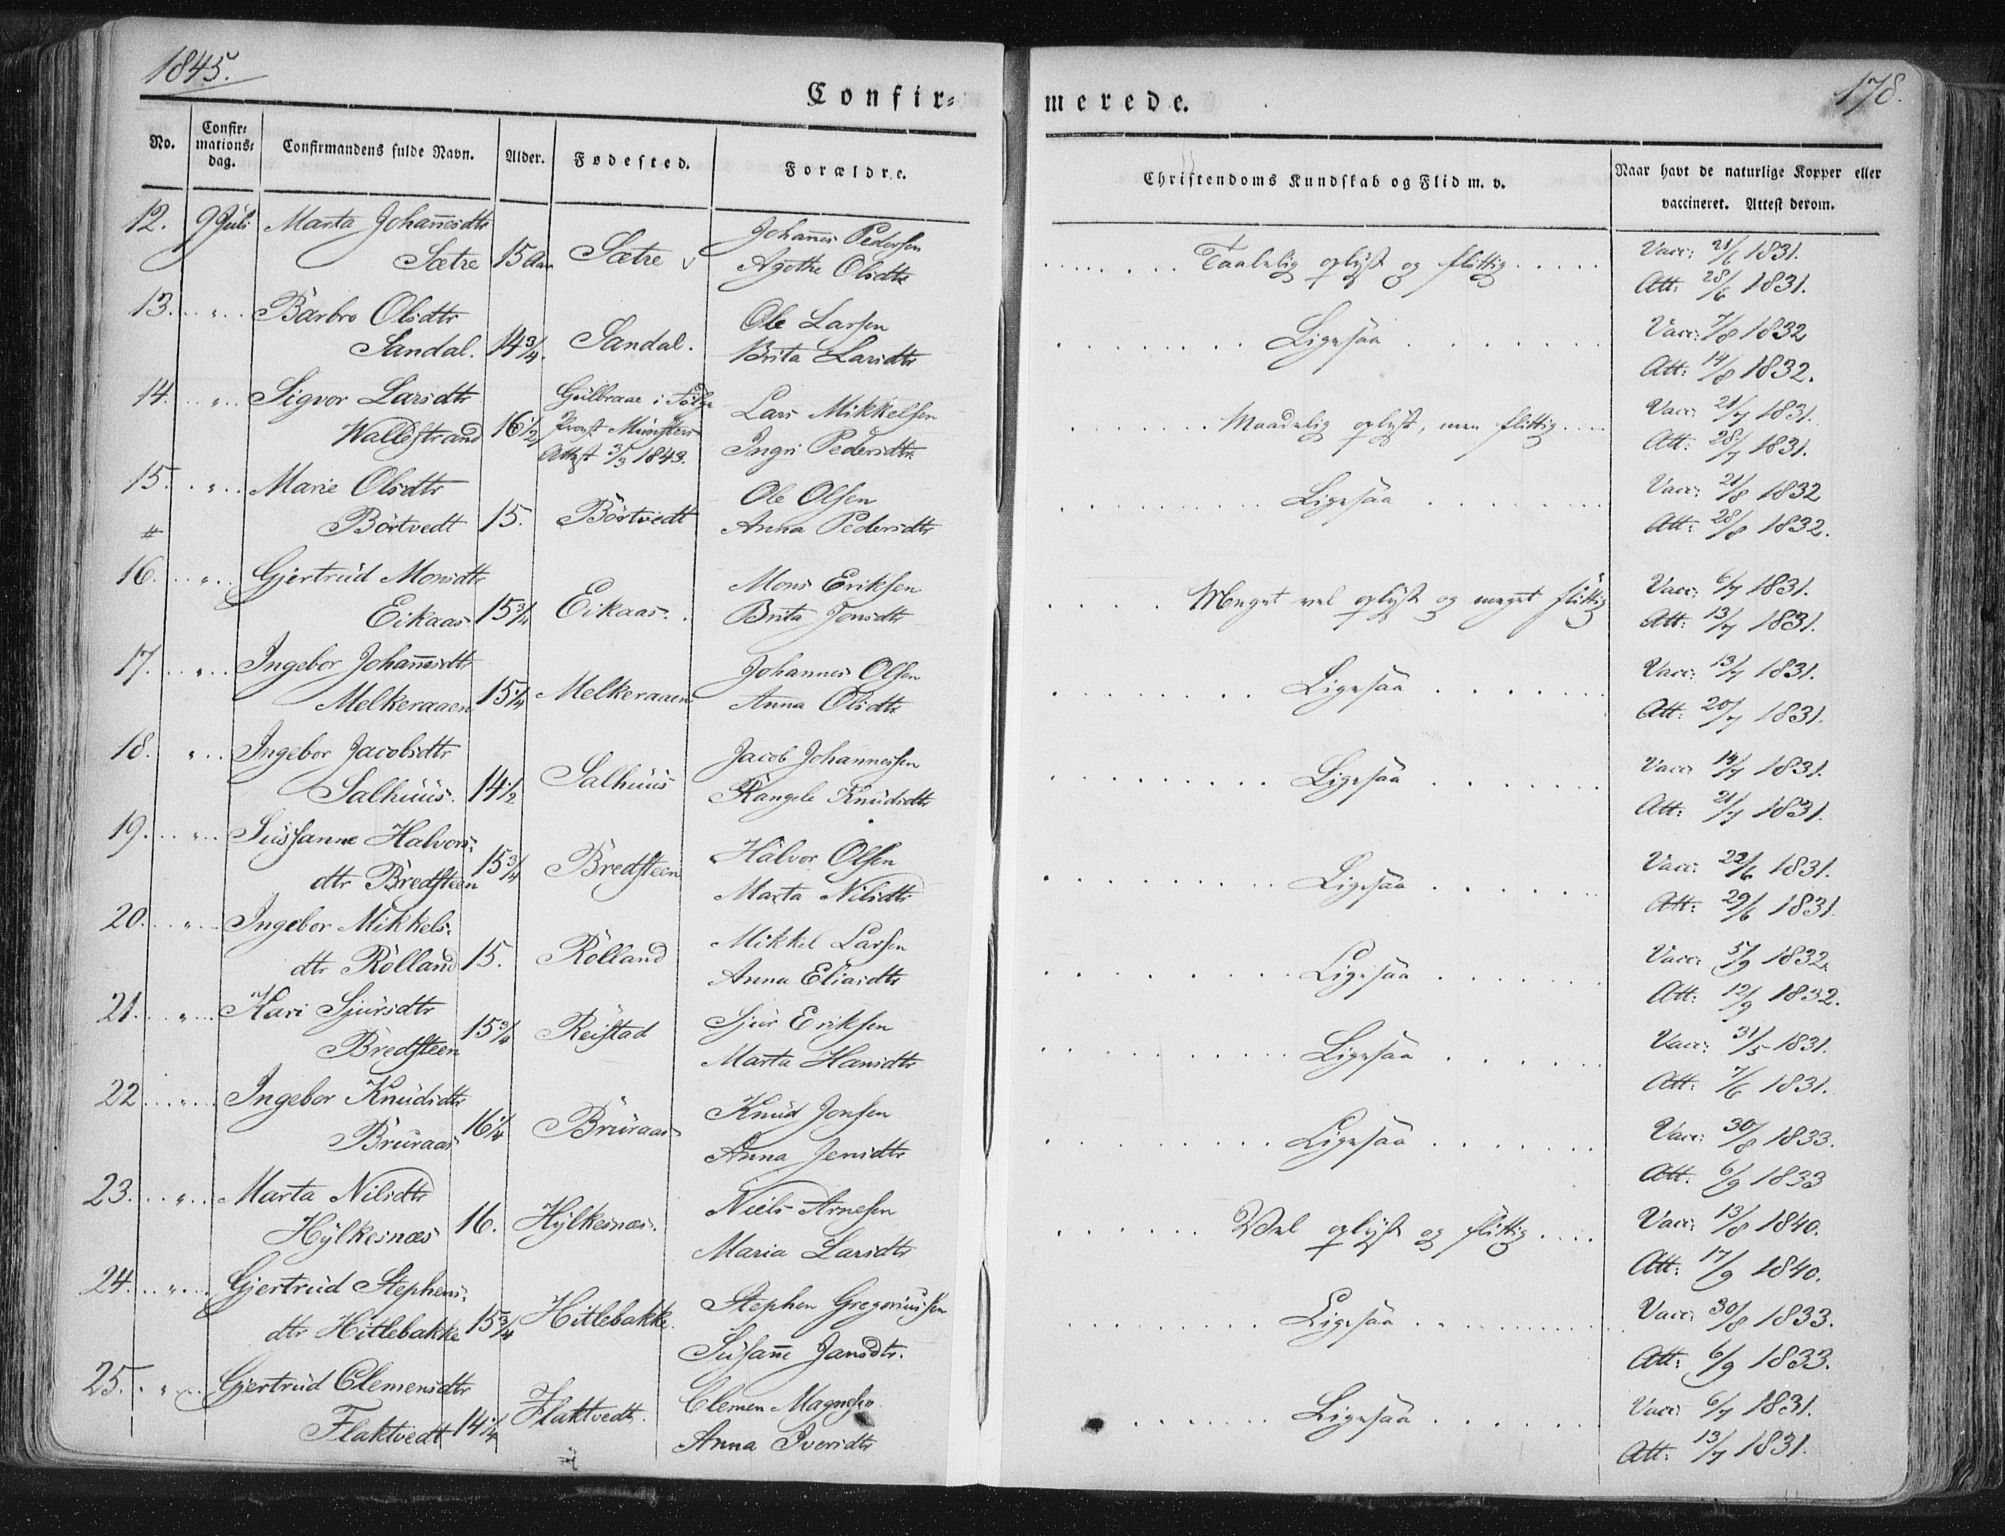 1845.
178.
Confir-
merede.
No.
Confir-
mations-
dag.
Confirmandens fulde Navn.
Alder.
Fødested.
Forældre.
Christendoms Kundskab og Flid m. v.
Naar havt de naturlige Kopper eller
vaccineret. Attest derom.
12. 9 Juli Marta Johannesdtr Johannes Pedersen Vacc: 21/6 1831.
Sætre 15 Aar Sætre Agothe Olsdtr Taalelig oplyst og flittig Att: 28/6 1831.
13. " Barbro Olsdtr Ole Larsen Vacc: 7/8 1832
Sandal. 14 3/4 Sandal. Brita Larsdtr Ligesaa Att: 14/8 1832.
14. " Sigvor Larsdtr Gulbraae i Lars Mikkelsen Vacc: 21/7 1831.
Wallestrand 16 1/2 Provst Münsters Ingri Pedersdtr Maadelig oplyst, men flittig Att: 28/7 1831.
Attest 3/3 1843.
15. " Marie Olsdtr Ole Olsen Ligesaa Vacc: 21/8 1832
# Börtvedt 15. Börtvedt Anna Pedersdtr Att: 28/8 1832.
16. " Gjertrud Monsdtr Mons Eriksen Vacc: 6/7 1831.
Eikaas 15 3/4 Eikaas. Brita Jonsdtr Meget vel oplyst og meget flittig Att: 13/7 1831.
17. " Ingebor Johannesdtr Johannes Olsen Vacc: 13/7 1831.
Melkeraaen 15 1/4 Melkeraaen Anna Olsdtr Ligesaa Att: 20/7 1831.
18. " Ingebor Jacobsdtr Jacob Johannessen Vacc: 14/7 1831.
Salhuus. 14 1/2 Salhuus Rangele Knudsdtr Ligesaa Att: 21/7 1831.
19. " Sussanne Halvors- Halvor Olsen Vacc: 22/6 1831.
dtr Bredsteen 15 3/4 Bredsteen Marta Nilsdtr Ligesaa Att: 29/6 1831.
20. " Ingebor Mikkels- Mikkel Larsen Vacc: 5/9 1832.
dtr Rolland 15. Rolland Anna Eliasdtr Ligesaa Att: 12/9 1832.
21. " Kari Sjursdtr Sjur Eriksen Vacc: 31/5 1831.
Bredsteen 15 3/4 Reistad Marta Hansdtr Ligesaa Att: 7/6 1831.
22 " Ingebor Knudsdtr Knud Jonsen Vacc: 30/8 1833.
Bruraas 16 1/4 Bruraas Anna Jensdtr Ligesaa Att: 6/9 1833
23. " Marta Nilsdtr Niels Arnesen Vacc: 13/8 1840.
Hylkesnæs 16. Hylkesnæs. Maria Larsdtr Vel oplyst og flittig Att: 17/9 1840.
24. " Gjertrud Stephens- Stephen Gregoriussen Vacc: 30/8 1833.
dtr Hitlebakke 15 3/4 Hitlebakke. Susanne Jansdtr. Ligesaa Att: 6/9 1833.
25. " Gjertrud Clemensdtr Clemen Magnesen Vacc: 6/7 1831.
Flaktvedt 14 1/4 Flaktvedt. Anna Iversdtr Ligesaa Att: 13/7 1831.